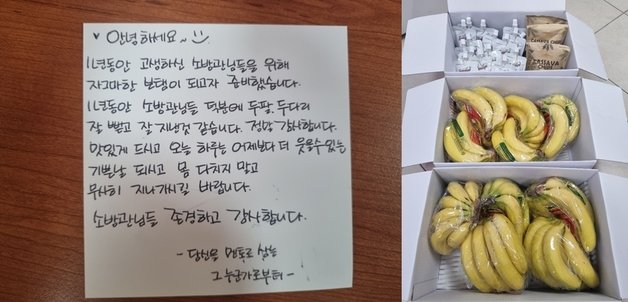 ♥ 안녕하세요~
1년동안 고생하신 소방관님들을 위해
자그마한 보탬이 되고자 준비했습니다.
1년동안 소방관님들 덕분에 두팔, 두다리
잘 뻗고 잘 지낸것 같습니다. 정말 감사합니다.
맛있게 드시고 오늘 하루는 어제보다 더 웃을수있는
기쁜날 되시고 몸 다치지 말고
무사히 지나가시길 바랍니다.
소방관님들 존경하고 감사합니다.
- 당신을 멘토로 삼는
그 누군가로부터 -
CASSAVA
CHIPS